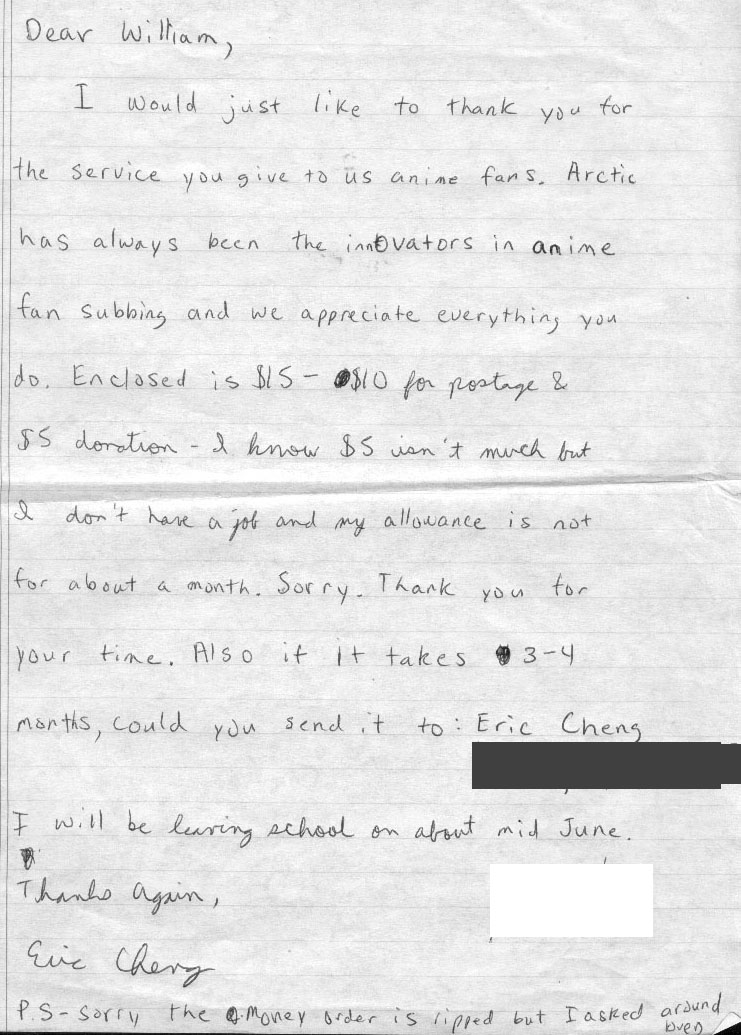 Dear William,
I would just like to thank you for
the service you give to us anime fans. Arctic
has always been the innovators in anime
fan subbing and we appreciate everything you
do. Enclosed is $15 - $10 for postage &
$5 donation - I know $5 isn't much but
I don't have a job and my allowance is not
for about a month. Sorry. Thank you for
your time. Also if it takes 3-4
months, could you send it to: Eric Cheng
I will be leaving school on about mid June.
Thanks again,
Eric Cheng
P.S- Sorry the Money order is ripped but I asked around